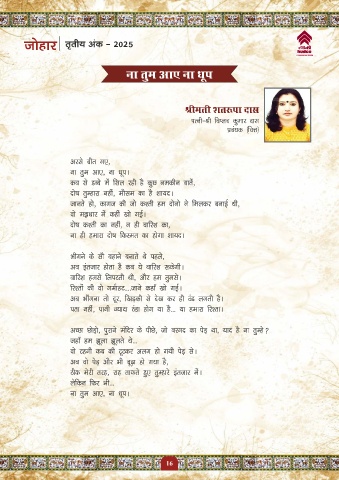 जोहार तृतीय अंक – 2025
hudco
ना तुम आए ना धूप
श्रीमती शतरूपा दास
पत्नी-श्री विप्लव कुमार दास
प्रबंधक (वित्त)
अरसे बीत गए,
ना तुम आए, ना धूप।
कब से डब्बे में सिल रही है कुछ नमकीन बातें,
दोष तुम्हारा नहीं, मौसम का है शायद।
जानते हो, कागज की जो कश्ती हम दोनो ने मिलकर बनाई थी,
वो मझधार में कहीं खो गई।
दोष कश्ती का नहीं, न ही बारिश का,
ना ही हमारा दोष किस्मत का होगा शायद।
भीगने के सौ बहाने बनाते थे पहले,
अब इंतजार होता है कब ये बारिश रुकेगी।
बारिश हमसे लिपटती थी, और हम तुमसे।
रिश्तों की वो गर्माहट...जाने कहाँ खो गई।
अब भीगना तो दूर, खिड़की से देख कर ही ठंड लगती है।
पता नहीं, पानी ज्यादा ठंडा होग या है... या हमारा रिश्ता।
अच्छा छोड़ो, पुराने मंदिर के पीछे, जो बरगद का पेड़ था, याद है ना तुम्हे?
जहाँ हम झूला झूलते थे...
वो टहनी कब की टूटकर अलग हो गयी पेड़ से।
अब वो पेड़ और भी बूढ़ा हो गया है,
ठीक मेरी तरह, राह ताकते हुए तुम्हारे इंतजार में।
लेकिन फिर भी...
ना तुम आए, ना धूप।
16